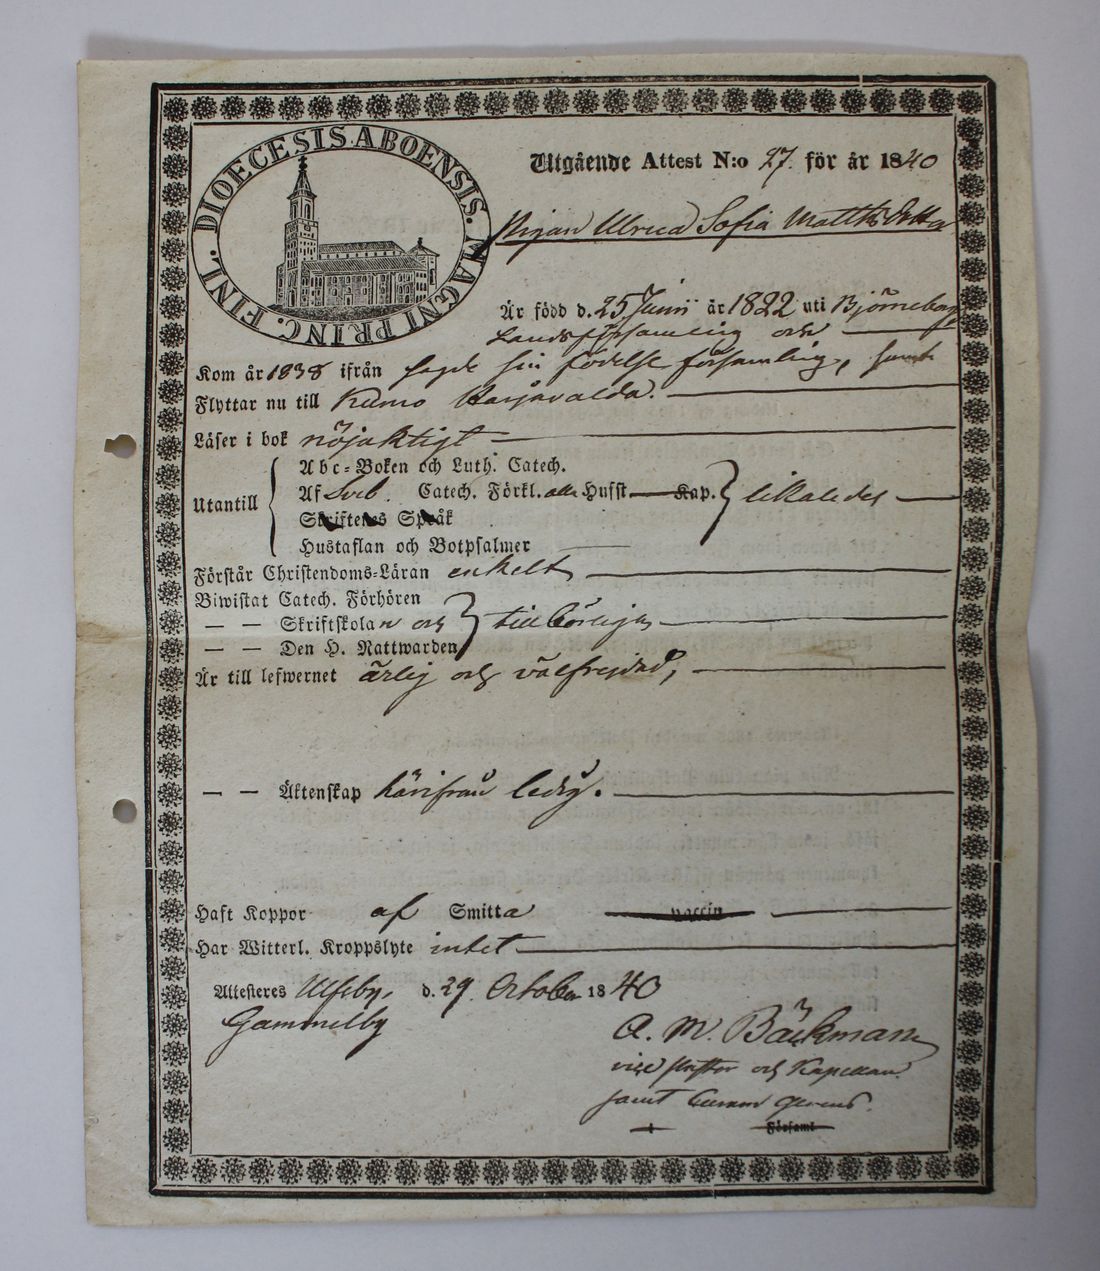 DIOECESIS ABOENSIS. MAGNI PRINC. FINL.
Utgående Attest N:o 27. för år 1840
Pigan Ulrica Sofia Matth: Dotter
Är född d. 25 Junii år 1822 uti Björneborgs
Landsförsamling och
Kom år 1838 ifrån sagde sin födelse församling, samt
Flyttar nu till Kumo Harjavalda.
Läser i bok nöjaktigt
Utantill
Abc-Boken och Luth. Catech.
Af Sveb. Catech. Förkl. alla Hufst Kap. likaledes
Skriftenes Språk
Hustaflan och Botpsalmer
Förstår Christendoms-Läran enkelt
Biwistat Catech. Förhören
— — Skriftskolan och tillbörligen
— — Den H. Nattwarden
Är till lefwernet ärlig och välfrejdad,
— — Äktenskap härifrån ledig.
Haft Koppor af Smitta vaccin
Har Witterl. Kroppslyte intet
Attesteres Ulfsby, d. 29 October 1840
Gammelby
A. M. Bäckman
vice Pastor och Kapellan
samt
Församl